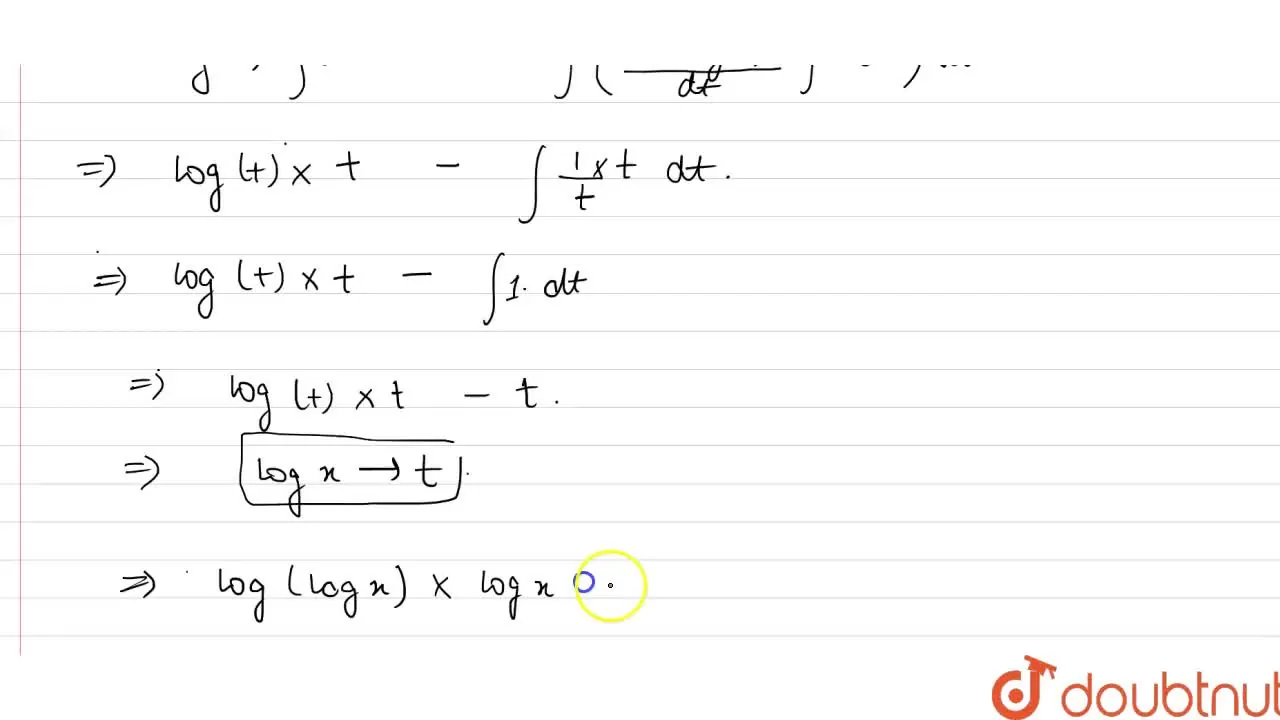 dt
=> log (t) x t - ∫ 1/t x t dt.
=> log (t) x t - ∫ 1. dt
=> log (t) x t - t.
=> log x → t
=> log (log x) x log x
doubtnut